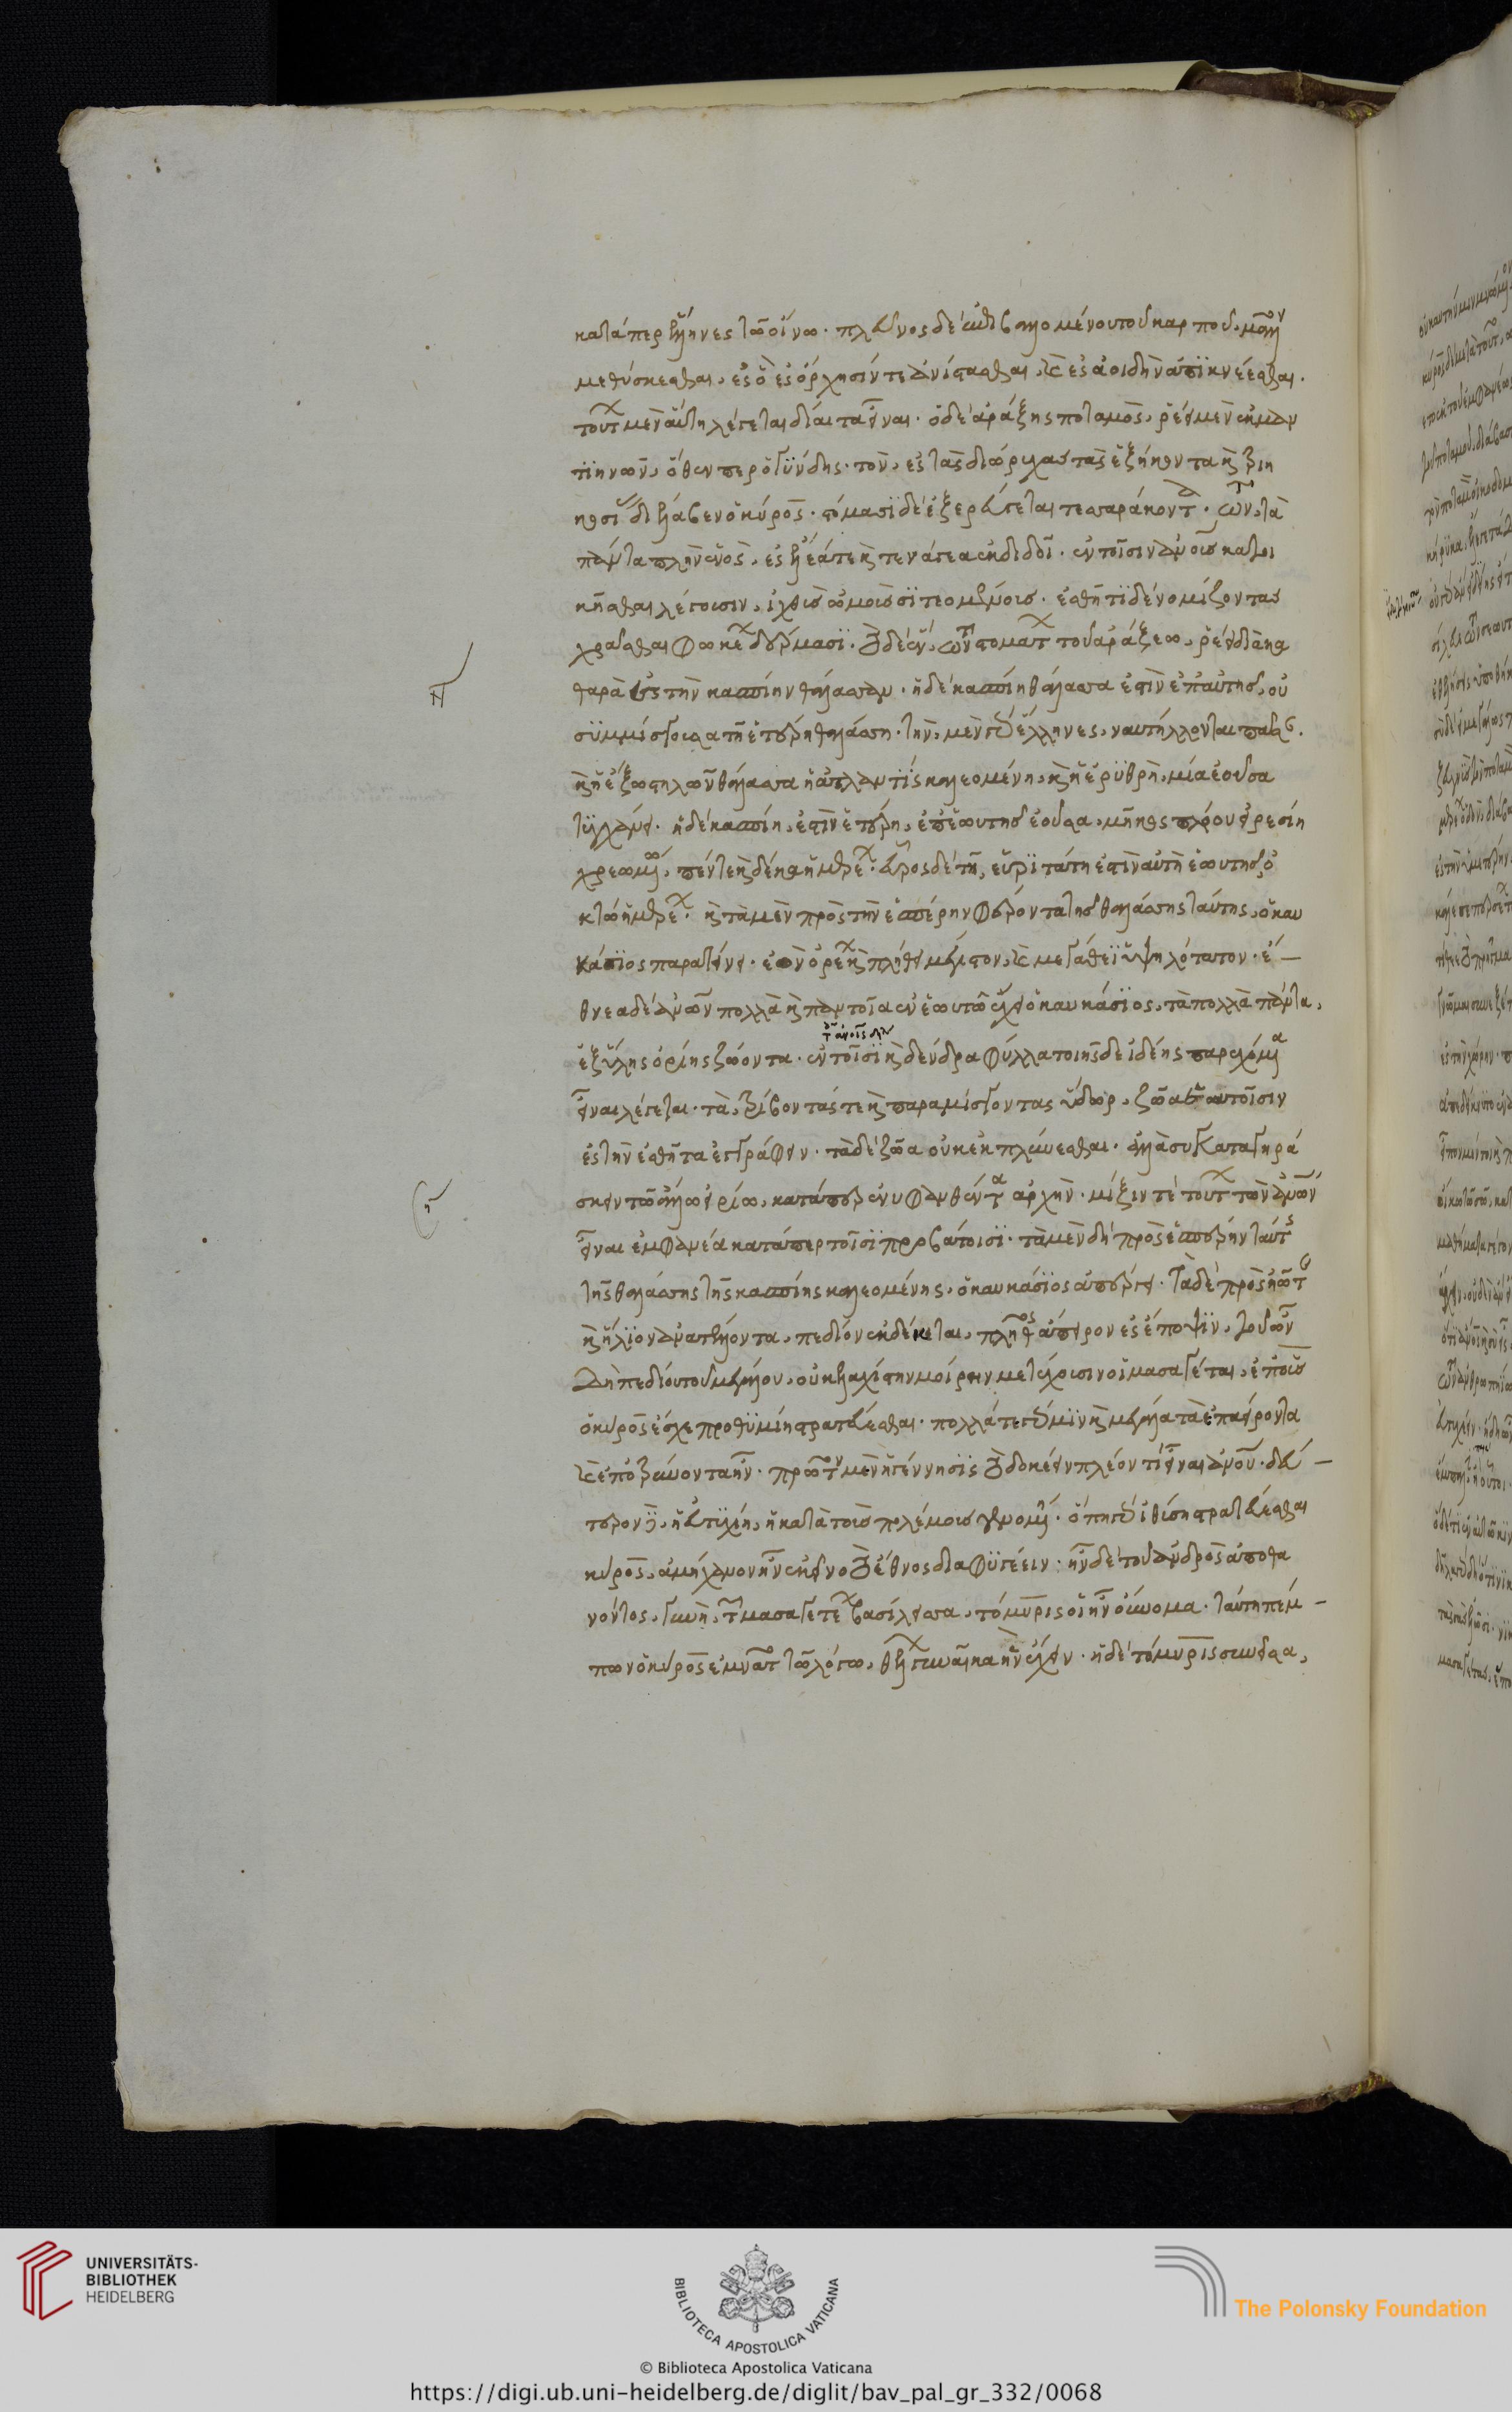 καταπερ ἕλληνες τῶ οἴνω· πλεῦνος δὲ ἐπιβαλλομένου τοῦ καρποῦ, μᾶλλον
μεθύσκεσθαι, ἐς ὃ ἐς ὄρχησίν τε ἀνίστασθαι, καὶ ἐς ἀοιδὴν ἀπικνέεσθαι.
τούτων μὲν αὕτη λέγεται δίαιτα εἶναι· ὁ δὲ ἀράξης ποταμὸς, ῥέει μὲν ἐκ μαν
τιηνῶν, ὅθεν περ ὁ γύνδης· τὸν, ἐς τὰς διώρυχας τὰς ἑξήκοντα καὶ τριη
κοσίας διέλαβεν ὁ κύρος· στόμασι δὲ ἐξερεύγεται τεσσαράκοντα· τῶν, τὰ
πάντα πλὴν ἑνὸς, ἐς ἕλεά τε καὶ τενάγεα ἐκδιδοῖ· ἐν τοῖσιν ἀνθρώπους κατοι
κῆσθαι λέγουσιν, ἰχθῦς ὠμοὺς σιτεομένους· ἐσθῆτι δὲ νομίζοντας
χρᾶσθαι φωκέων δέρμασι· τὸ δὲ ἓν, τῶν στομάτων τοῦ ἀράξεω, ῥέει διὰ κα
θαρὰ ἐς τὴν κασπίην θάλασσαν· ἡ δὲ κασπίη θάλασσα ἐστὶν ἐπ' αὐτῆς, οὐ
συμμίσγουσα τῆ ἑτέρη θαλάσση· τὴν, μὲν γὰρ ἕλληνες, ναυτίλλονται πᾶσα.
καὶ ἡ ἔξω στηλῶν θάλασσα ἡ ἀτλαντὶς καλεομένη, καὶ ἡ ἐρυθρὴ, μία ἐοῦσα
τυγχάνει· ἡ δὲ κασπίη, ἐστὶν ἑτέρη, ἐπ' ἑωυτῆς ἐοῦσα, μῆκος πλόου εἰρεσίη
χρεωμένω, πέντε καὶ δέκα ἡμερέων· εὖρος δὲ τῆ, εὐρυτάτη ἐστὶν αὐτὴ ἑωυτῆς, ὀ
κτὼ ἡμερέων· καὶ τὰ μὲν πρὸς τὴν ἑσπέρην φέροντα τῆς θαλάσσης ταύτης, ὁ καυ
κάσιος παρατείνει· ἐὸν ὀρέων καὶ πλήθει μέγιστον, καὶ μεγάθει ὑψηλότατον· ἔ-
θνεα δὲ ἀνθρώπων πολλὰ καὶ παντοῖα ἐν ἑωυτῶ ἔχει ὁ καυκάσιος, τὰ πολλὰ πάντα,
ἐξ ὕλης ἀγρίης ζώοντα· ἐν τοῖσι καὶ δένδρα φύλλα τοιῆσδε ἰδέης παρεχόμενα
εἶναι λέγεται· τὰ, τρίβοντάς τε καὶ παραμίσγοντας ὕδωρ, ζῶα ἑωυτοῖσιν
ἐς τὴν ἐσθῆτα ἐγγράφειν· τὰ δὲ ζῶα οὐκ ἐκπλύνεσθαι· ἀλλὰ συγκαταγηρά
σκειν τῶ ἄλλω εἰρίω, κατάπερ ἐνυφανθέντα ἀρχὴν· μίξιν τὲ τούτων τῶν ἀνθρώπων
εἶναι ἐμφανέα κατάπερ τοῖσι προβάτοισι· τὰ μὲν δὴ πρὸς ἑσπέρην ταύτης
τῆς θαλάσσης τῆς κασπίης καλεομένης, ὁ καυκάσιος ἀπέργει· τὰ δὲ πρὸς ἠῶ τε
καὶ ἥλιον ἀνατέλλοντα, πεδίον ἐκδέκεται, πλῆθος ἄπειρον ἐς ἔποψιν, τοῦ ὦν
δὴ πεδίου τοῦ μεγάλου, οὐκ ἐλαχίστην μοίρην μετέχουσιν οἱ μασαγέται, ἐπ' οὓς
ὁ κῦρος ἔσχε προθυμίη στρατεύεσθαι· πολλά τε γάρ μιν καὶ μεγάλα τὰ ἐπαείροντα
καὶ ἐποτρύνοντα ἦν· πρῶτον μὲν ἡ γέννησις τὸ δοκέειν πλέον τί εἶναι ἀνθρώπου· δεύ-
τερον δὲ, ἡ εὐτυχίη, ἡ κατὰ τοὺς πολέμους γενομένη· ὅπη γὰρ ἰθύση στρατεύεσθαι
κῦρος, ἀμήχανον ἦν ἐκεῖνο τὸ ἔθνος διαφυγέειν· ἦν δὲ τοῦ ἀνδρὸς ἀποθα
νόντος, γυνὴ, τῶν μασαγετέων βασίλεισσα, τόμυρις οἱ ἦν οὔνομα· ταύτη πέμ-
πων ὁ κῦρος ἐμνᾶτο τῶ λόγω, θέλων γυναῖκα ἣν ἔχειν· ἡ δὲ τόμυρις συνιεῖσα,
UNIVERSITÄTS-
BIBLIOTHEK
HEIDELBERG
BIBLIOTECA APOSTOLICA VATICANA
The Polonsky Foundation
© Biblioteca Apostolica Vaticana
https://digi.ub.uni-heidelberg.de/diglit/bav_pal_gr_332/0068